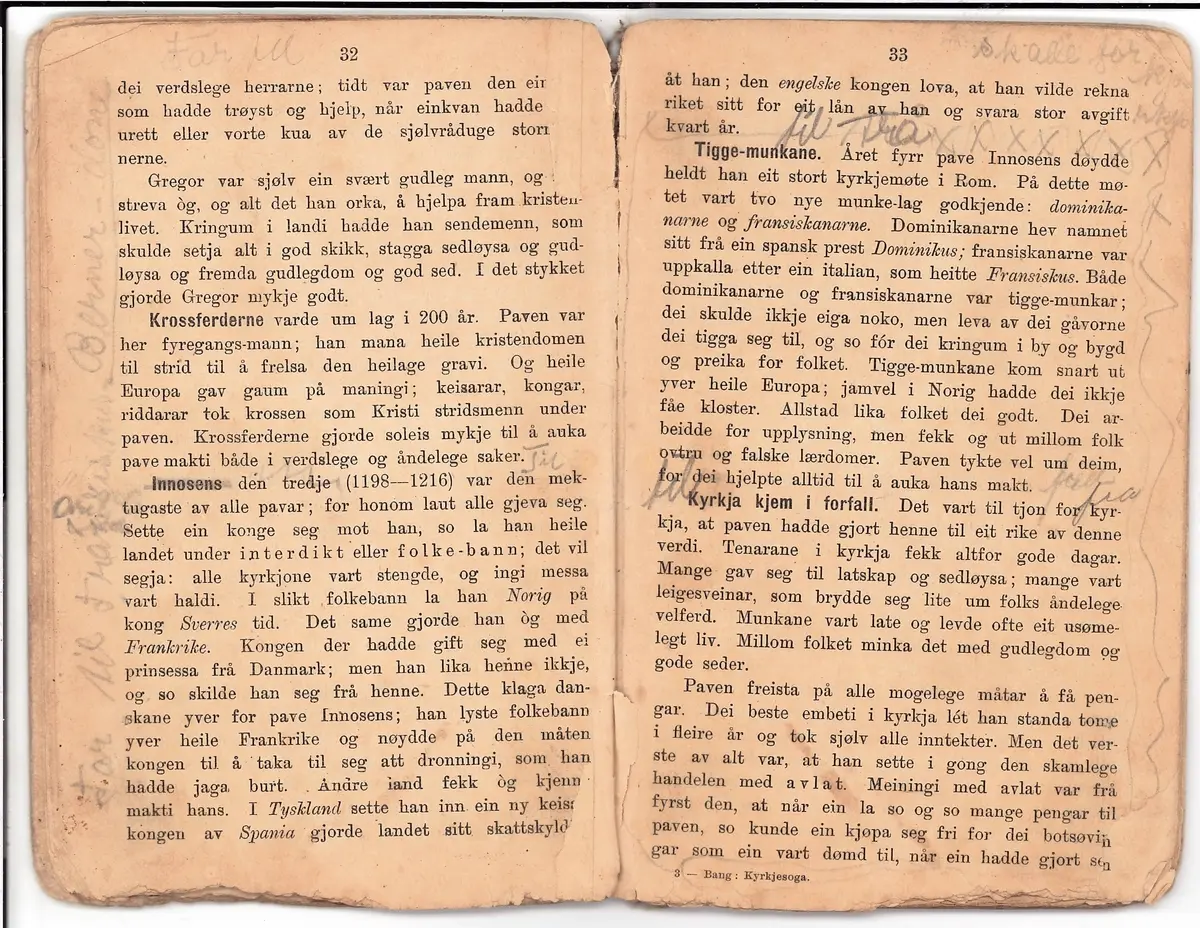 32
dei verdslege herrarne; tidt var paven den ein
som hadde trøyst og hjelp, når einkvan hadde
urett eller vorte kua av de sjølvråduge stor
nerne.
Gregor var sjølv ein svært gudleg mann, og
streva òg, og alt det han orka, å hjelpa fram kristen-
livet. Kringum i landi hadde han sendemenn, som
skulde setja alt i god skikk, stagga sedløysa og gud-
løysa og fremda gudlegdom og god sed. I det stykket
gjorde Gregor mykje godt.
Krossferderne varde um lag i 200 år. Paven var
her fyregangs-mann; han mana heile kristendomen
til strid til å frelsa den heilage gravi. Og heile
Europa gav gaum på maningi; keisarar, kongar,
riddarar tok krossen som Kristi stridsmenn under
paven. Krossferderne gjorde soleis mykje til å auka
pavemakti både i verdslege og åndelege saker.
Innosens den tredje (1198—1216) var den mek-
tugaste av alle pavar; for honom laut alle gjeva seg.
Sette ein konge seg mot han, so la han heile
landet under interdikt eller folke-bann; det vil
segja: alle kyrkjone vart stengde, og ingi messa
vart haldi. I slikt folkebann la han Norig på
kong Sverres tid. Det same gjorde han òg med
Frankrike. Kongen der hadde gift seg med ei
prinsessa frå Danmark; men han lika henne ikkje,
og so skilde han seg frå henne. Dette klaga dan-
skane yver for pave Innosens; han lyste folkebann
yver heile Frankrike og nøydde på den måten
kongen til å taka til seg att dronningi, som han
hadde jaga burt. Andre land fekk òg kjenn
makti hans. I Tyskland sette han inn ein ny keis
kongen av Spania gjorde landet sitt skattskyld
33
åt han; den engelske kongen lova, at han vilde rekna
riket sitt for eit lån av han og svara stor avgift
kvart år.
til Frå
Tigge-munkane. Året fyrr pave Innosens døydde
heldt han eit stort kyrkjemøte i Rom. På dette mø-
tet vart tvo nye munke-lag godkjende: dominika-
narne og fransiskanarne. Dominikanarne hev namnet
sitt frå ein spansk prest Dominikus; fransiskanarne var
uppkalla etter ein italian, som heitte Fransiskus. Både
dominikanarne og fransiskanarne var tigge-munkar;
dei skulde ikkje eiga noko, men leva av dei gåvorne
dei tigga seg til, og so fór dei kringum i by og bygd
og preika for folket. Tigge-munkane kom snart ut
yver heile Europa; jamvel i Norig hadde dei ikkje
fåe kloster. Allstad lika folket dei godt. Dei ar-
beidde for upplysning, men fekk og ut millom folk
ovtru og falske lærdomer. Paven tykte vel um deim,
for dei hjelpte alltid til å auka hans makt.
Kyrkja kjem i forfall. Det vart til tjon for kyr-
kja, at paven hadde gjort henne til eit rike av denne
verdi. Tenarane i kyrkja fekk altfor gode dagar.
Mange gav seg til latskap og sedløysa; mange vart
leigesveinar, som brydde seg lite um folks åndelege
velferd. Munkane vart late og levde ofte eit usøme-
legt liv. Millom folket minka det med gudlegdom og
gode seder.
Paven freista på alle mogelege måtar å få pen-
gar. Dei beste embeti i kyrkja lét han standa tome
i fleire år og tok sjølv alle inntekter. Men det ver-
ste av alt var, at han sette i gong den skamlege
handelen med avlat. Meiningi med avlat var frå
fyrst den, at når ein la so og so mange pengar til
paven, so kunde ein kjøpa seg fri for dei botsøvin
gar som ein vart dømd til, når ein hadde gjort sen
3 — Bang: Kyrkjesoga.